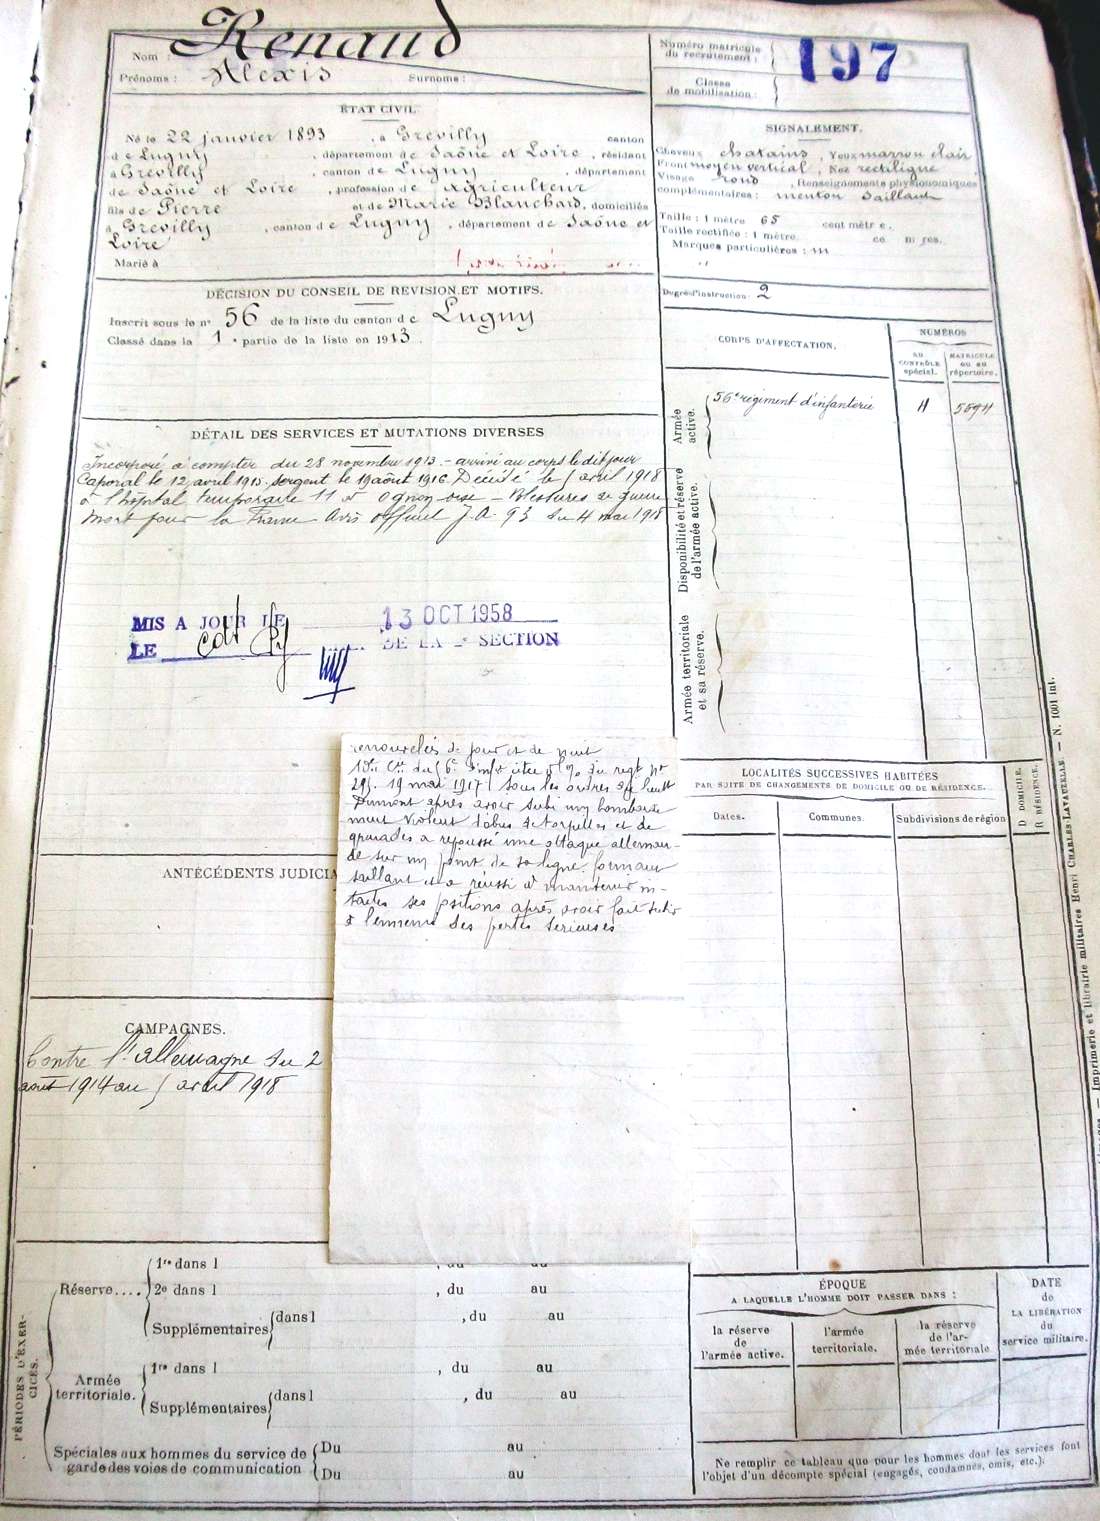 Nom : Renaud
Prénoms : Alexis Surnoms :
Numéro matricule du recrutement : 197
Classe de mobilisation :
ÉTAT CIVIL.
Né le 22 janvier 1893, à Grevilly canton
de Lugny, département de Saône et Loire, résidant
à Grevilly, canton de Lugny, département
de Saône et Loire, profession de agriculteur
fils de Pierre et de Marie Blanchard, domiciliés
à Grevilly, canton de Lugny, département de Saône et
Loire
Marié à
SIGNALEMENT.
Cheveux chatains, Yeux marron clair
Front moyen vertical, Nez rectiligne
Visage rond, Renseignements physionomiques
complémentaires : menton saillant
Taille : 1 mètre 65 centimètres.
Taille rectifiée : 1 mètre
Marques particulières :
Degré d'instruction : 2
DÉCISION DU CONSEIL DE REVISION ET MOTIFS.
Inscrit sous le n° 56 de la liste du canton de Lugny
Classé dans la 1e partie de la liste en 1913.
CORPS D'AFFECTATION.
NUMÉROS
AU CONTRÔLE spécial.
MATRICULE OU AU répertoire.
Armée active.
56e régiment d'infanterie
Disponibilité et réserve de l'armée active.
Armée territoriale et sa réserve.
DÉTAIL DES SERVICES ET MUTATIONS DIVERSES
Incorporé à compter du 28 novembre 1913. - arrivé au corps le dit jour
Caporal le 12 avril 1915. sergent le 19 août 1916 Décédé le 5 avril 1918
à l'hôpital temporaire 11 d'Ognon oise - Blessures de guerre
Mort pour la France Avis officiel J.A 93 du 4 mai 1918
MIS A JOUR LE 13 OCT 1958
LE DE LA SECTION
renouvelés de jour et de nuit
291. 19 mai 1917 sous les ordres du lieutt
Dumont après avoir subi un bombarde
ment violent d'obus de torpilles et de
grenades a repoussé une attaque alleman-
de sur un point de sa ligne formant
saillant et a réussi à maintenir in-
tactes ses positions après avoir fait subir
à l'ennemi des pertes serieuses
ANTÉCÉDENTS JUDICIA
CAMPAGNES.
Contre l'Allemagne du 2
août 1914 au 5 avril 1918
LOCALITÉS SUCCESSIVES HABITÉES
PAR SUITE DE CHANGEMENTS DE DOMICILE OU DE RÉSIDENCE.
Dates.
Communes.
Subdivisions de région
D DOMICILE.
R RÉSIDENCE.
Imprimerie et librairie militaires Henri CHARLES-LAVAUZELLE. — N. 1001 int.
PÉRIODES D'EXERCICES.
Réserve....
1re dans l , du au
2e dans l , du au
Supplémentaires dans l , du au
Armée territoriale.
1re dans l , du au
Supplémentaires dans l , du au
Spéciales aux hommes du service de garde des voies de communication
Du au
Du au
ÉPOQUE
A LAQUELLE L'HOMME DOIT PASSER DANS :
la réserve de l'armée active.
l'armée territoriale.
la réserve de l'armée territoriale
DATE de LA LIBÉRATION du service militaire.
Ne remplir ce tableau que pour les hommes dont les services font
l'objet d'un décompte spécial (engagés, condamnés, omis, etc.).